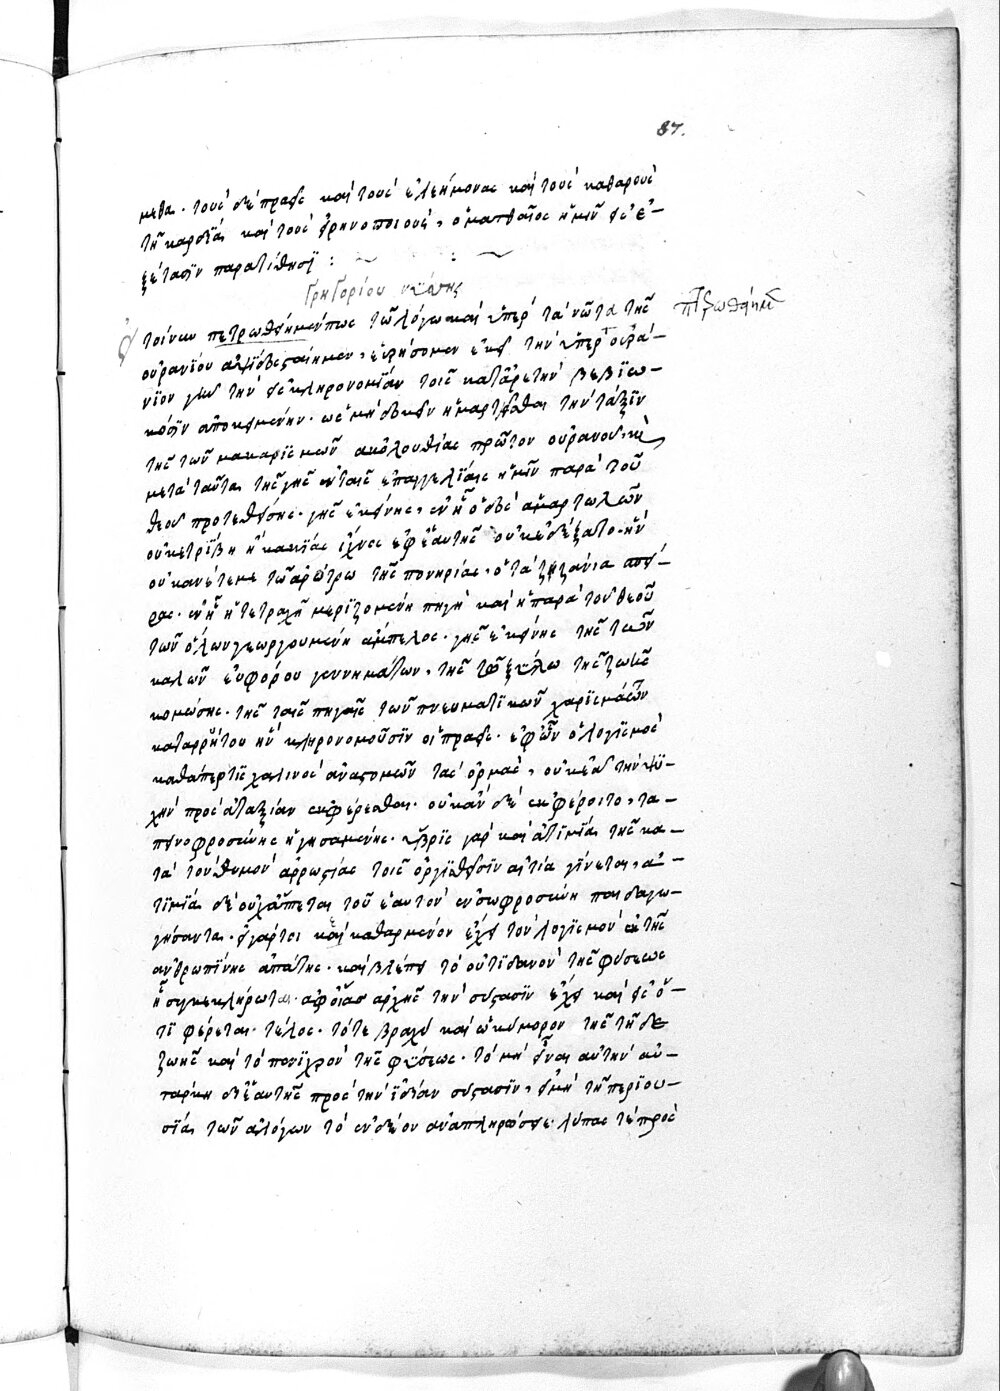 87.
μεθα· τοὺς δὲ πραεῖς καὶ τοὺς ἐλεήμονας καὶ τοὺς καθαροὺς
τῇ καρδίᾳ καὶ τοὺς εἰρηνοποιοὺς, ὁ ματθαῖος ἡμῖν εἰς ἐ-
ξέτασϊν παρατίθησϊ : ~ : ~
Γρηγορίου νύσης
εἰ τοίνυν πετρωθείημεν πως τῷ λόγῳ καὶ ὑπὲρ τὰ νῶτα τῆς πτερωθείημεν
οὐρανίου ἁψίδος σταίημεν, εὑρήσομεν ἐκεῖ τὴν ὑπερουρά-
νϊον γῆν τὴν εἰς κληρονομίαν τοῖς κατ' ἀρετὴν βεβϊω-
κόσϊν ἀποκειμένην· ὡς μὴ δοκεῖν ἡμαρτῆσθαι τὴν τάξϊν
τῆς τῶν μακαρισμῶν ἀκολουθίας πρῶτον οὐρανοῦ, καὶ
μετὰ ταῦτα τῆς γῆς ἐν ταῖς ἐπαγγελίαις ἡμῖν παρὰ τοῦ
θεοῦ προτεθείσης· γῆς ἐκείνης, ἐν ᾗ ὁδὸς ἁμαρτωλῶν
οὐκ ἐτρίβη ἢ κακίας ἴχνος ἐφ' ἑαυτῆς οὐκ ἐδέξατο· ἣν
οὐκ ἀνέτεμε τῷ ἀρότρῳ τῆς πονηρίας, ὁ τὰ ζιζάνια σπεί-
ρας· ἐν ᾗ ἡ τετραχῆ μεριζομένη πηγὴ καὶ ἡ παρὰ τοῦ θεοῦ
τῶν ὅλων γεωργουμένη ἄμπελος· γῆς ἐκείνης τῆς τῶν
καλῶν εὐφόρου γεννημάτων, τῆς τῷ ξύλῳ τῆς ζωῆς
κομώσης· τῆς ταῖς πηγαῖς τῶν πνευματικῶν χαρισμάτων
καταρρύτου ἣν κληρονομοῦσϊν οἱ πραεῖς· ἐφ' ὧν ὁ λογισμὸς
καθάπερ τις χαλινὸς ἀναστομῶν τὰς ὁρμὰς, οὐκ ἐᾷ τὴν ψυ-
χὴν πρὸς ἀταξίαν ἐκφέρεσθαι· οὐκ ἂν δὲ ἐκφέροιτο, τα-
πεινοφροσύνης ἡγησαμένης· ὕβρις γὰρ καὶ ἀτιμία τῆς κα-
τὰ τὸν θυμὸν ἀρρωστίας τοῖς ὀργισθεῖσϊν αἰτία γίνεται, ἀ-
τιμία δὲ οὐχ ἅπτεται τοῦ ἑαυτὸν ἐν σωφροσύνῃ παιδαγω-
γήσαντα· εἰ γάρ τοι κεκαθαρμένον ἔχει τὸν λογισμὸν ἐκ τῆς
ἀνθρωπίνης ἀπάτης· καὶ βλέπει τὸ οὐτιδανὸν τῆς φύσεως
ᾗ συγκεκλήρωται· ἀφ' οἵας ἀρχῆς τὴν σύστασιν ἔχει καὶ εἰς ὅ-
τι φέρεται τέλος· τό τε βραχὺ καὶ ὠκύμορον τῆς τῇδε
ζωῆς καὶ τὸ πονιχρὸν τῆς φύσεως· τὸ μὴ εἶναι αὐτὴν αὐ-
τάρκη δι' ἑαυτῆς πρὸς τὴν ἰδίαν σύστασϊν, εἰ μὴ τῇ περιου-
σίᾳ τῶν ἀλόγων τὸ ἐνδέον ἀναπληρώσειε· λύπας τὲ πρὸς